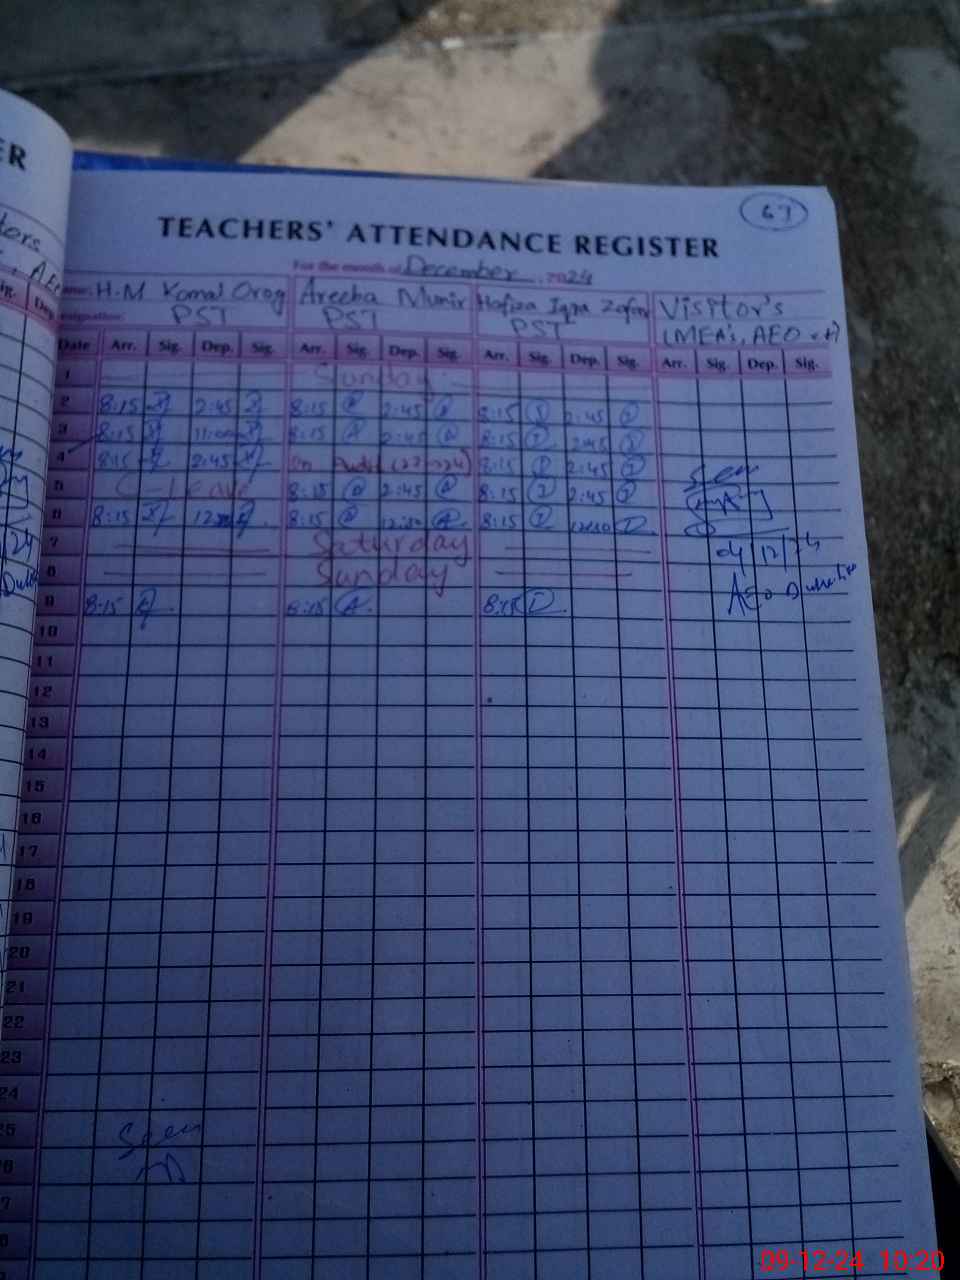 ER
67
TEACHERS' ATTENDANCE REGISTER
For the month of December 2024
H.M Komal Areeba Munir Hafiza Iqra Visitor's
PST PST PST (MEA's, AEO
Date Arr. Sig. Dep. Sig. Arr. Sig. Dep. Sig. Arr. Sig. Dep. Sig. Arr. Sig. Dep. Sig.
1 Sunday
2 8:15 2:45 8:15 2:45 8:15 2:45
3 8:15 11:00 8:15 2:45 8:15 2:45
4 8:15 2:45 on 8:15 2:45 Seen
5 C-leave 8:15 2:45 8:15 2:45
6 8:15 8:15 12:30 8:15 12:30
7 Saturday 04/12/24
8 Sunday AEO
9 8:15 8:15 8:15
10
11
12
13
14
15
16
17
18
19
20
21
22
23
24
25 Seen
6
7
8
09-12-24 10:20